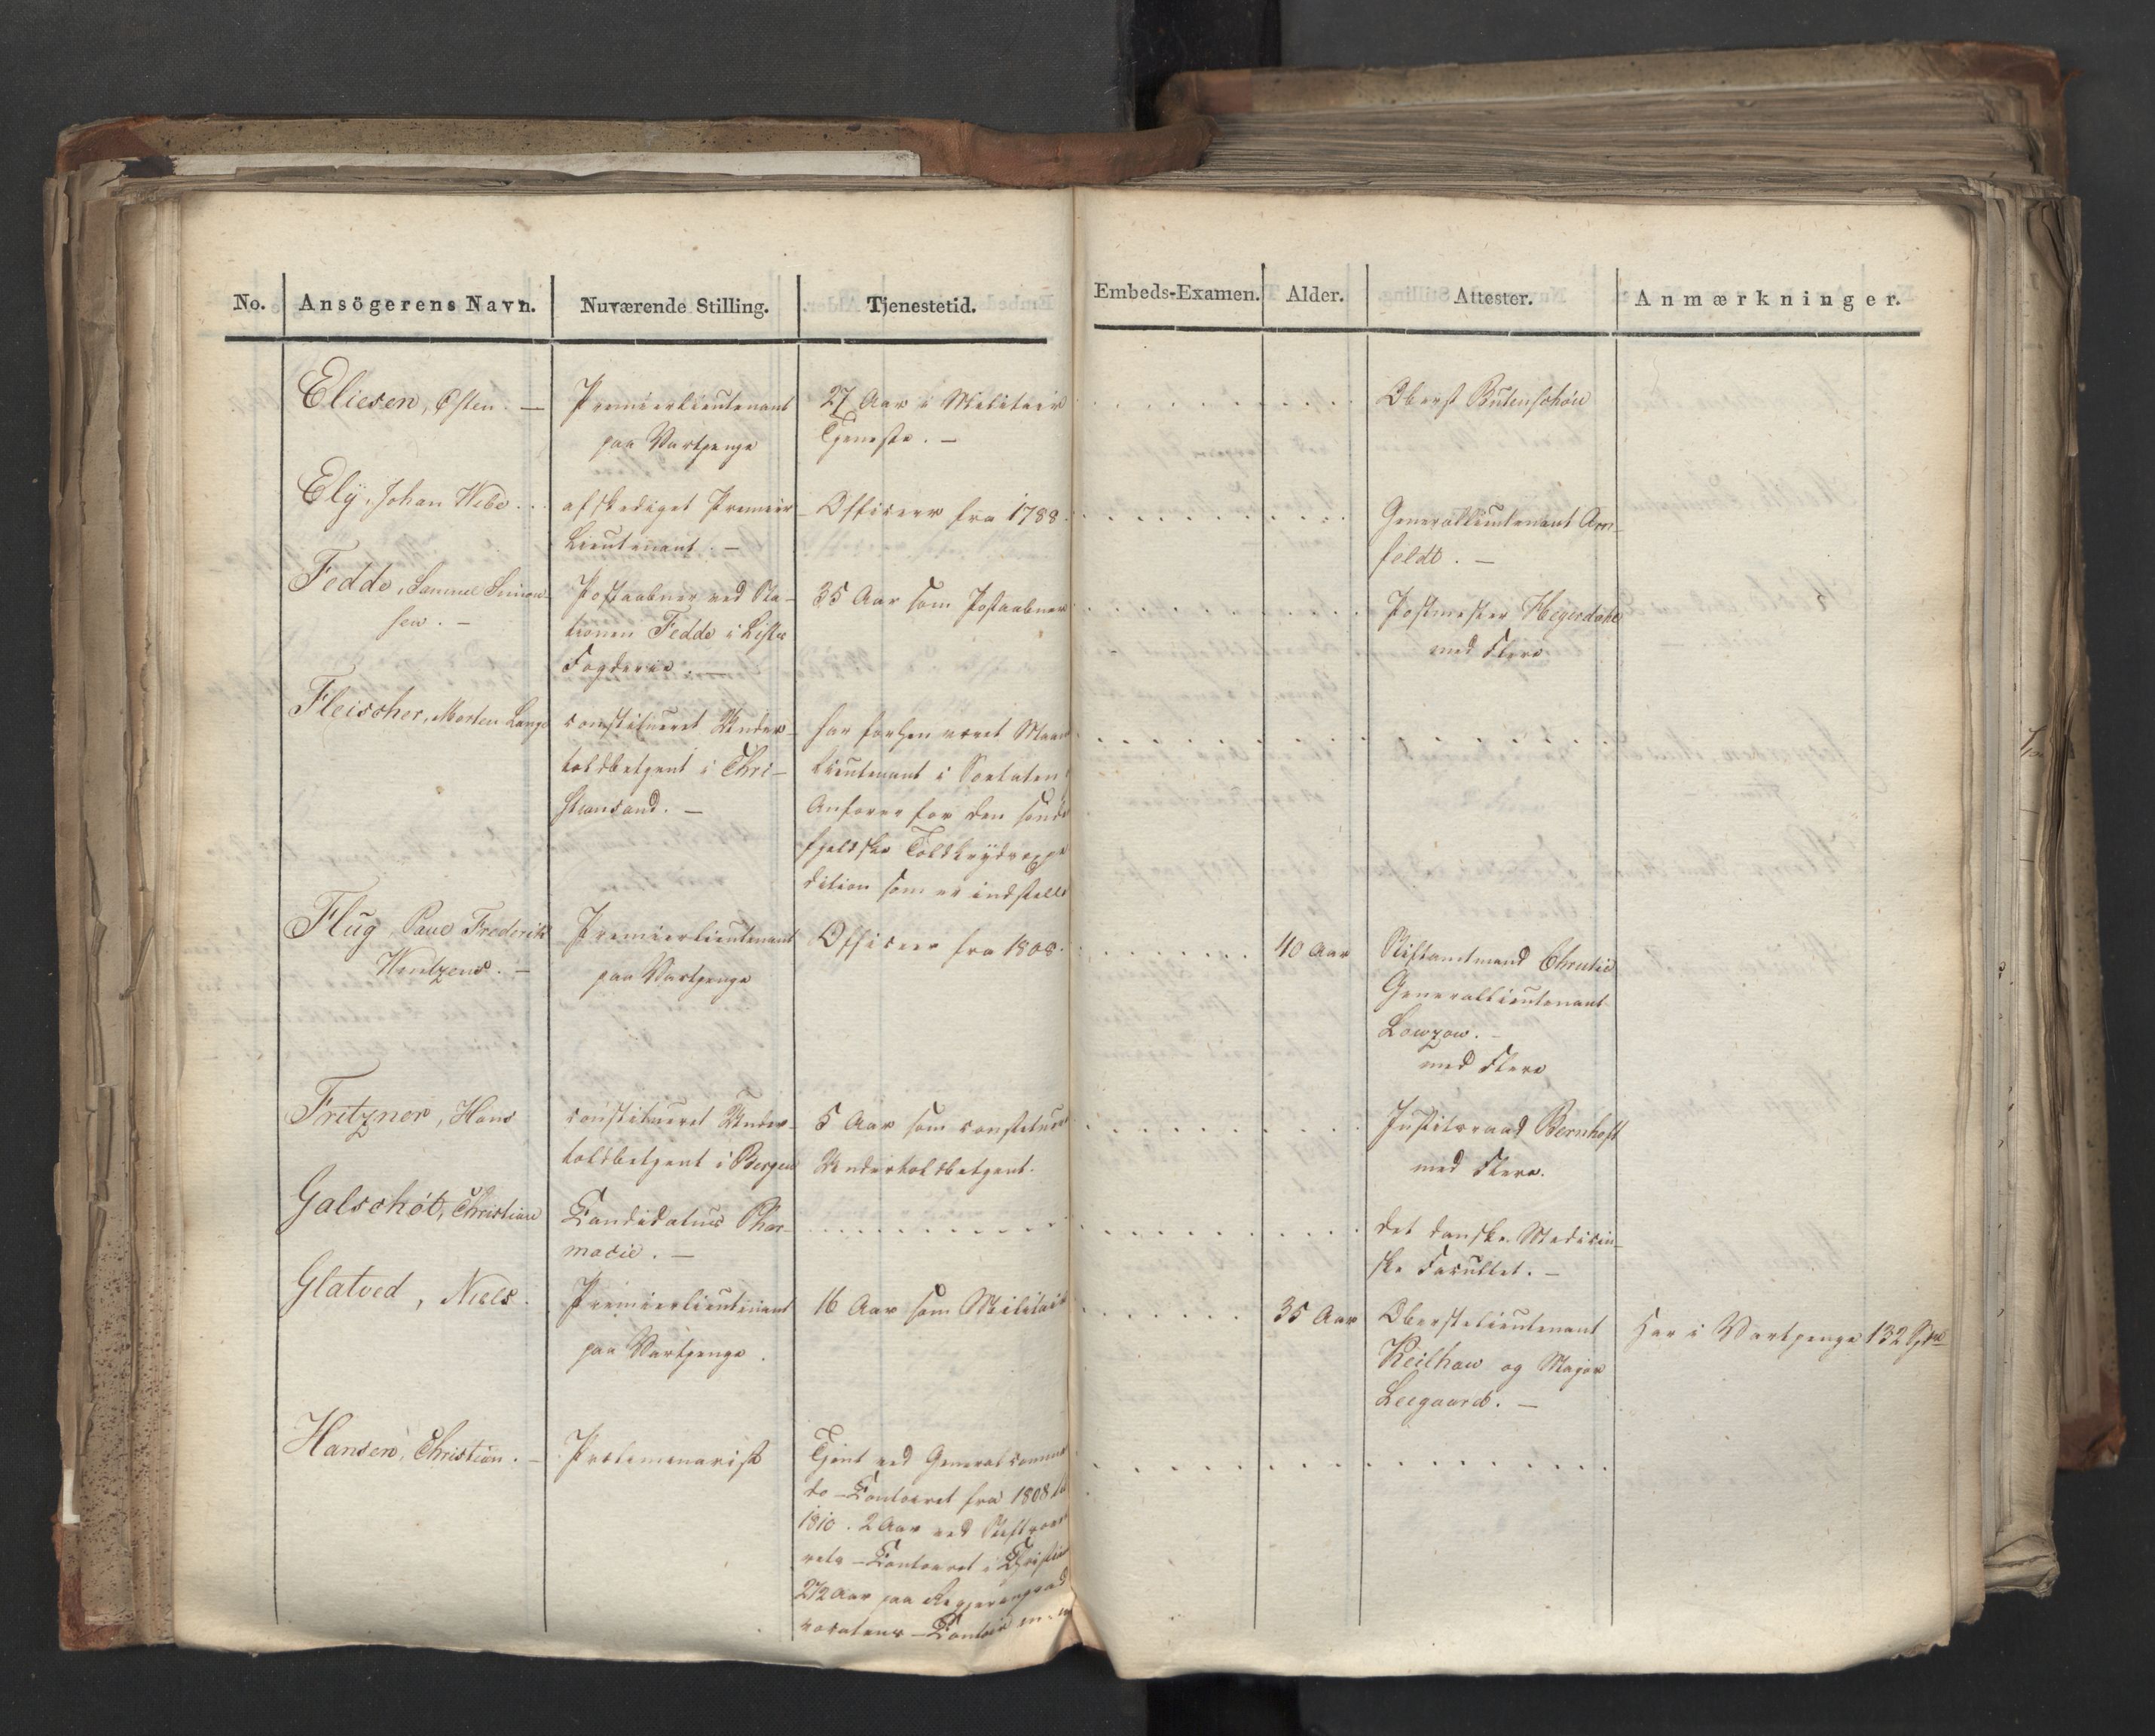 No. Ansögerens Navn. Nuværende Stilling. Tjenestetid. Embeds-Examen. Alder. Attester. Anmærkninger.
Eliesen, Østen. —
Premierlieutenant
paa Vartpenge
27 Aar i Militair
Tjeneste. —
Oberst Butenschøn
Ely, Johan Wibe
afskediget Premier
Lieutenant. —
Officeer fra 1788.
Generallieutenant Arn-
feldt. —
Fedde, Samuel Simon-
sen. —
Postaabner ved Sta-
tionen Fedde i Lister
Fogderie. —
35 Aar som Postaabner
Postmester Hegerdahl
med Flere
Fleischer, Morten Lange
constitueret Under-
toldbetjent i Chri-
stiansand. —
har forhen været Maan
Lieutenant i Soetaten
Anfører for den sønd
fjeldske Toldkrydsexpe
dition som er indstillet
Flug, Paul Frederik
Wentzen. —
Premierlieutenant
paa Vartpenge
Officeer fra 1808.
40 Aar
Stiftamtmand Christie
Generallieutenant
Lowzow. —
med Flere
Fritzner, Hans
constitueret Under-
toldbetjent i Bergen
5 Aar som constitueret
Undertoldbetjent.
Justitsraad Bernhoft
med Flere.
Galschøt, Christian
Candidatus Phar-
macie. —
det danske Medicin-
ske Facultet. —
Glatved, Niels.
Premierlieutenant
paa Vartpenge.
16 Aar som Militair
35 Aar
Oberstelieutenant
Keilhau og Major
Leegaard. —
Har i Vartpenge 132 Spd
Hansen, Christian. —
Protemenarist
Tjent ved General comman
do-Contoiret fra 1808 til
1810. 2 Aar ved
Contoiret i Christia
2 1/2 Aar paa Regjeringsad
vocatens-Contoir